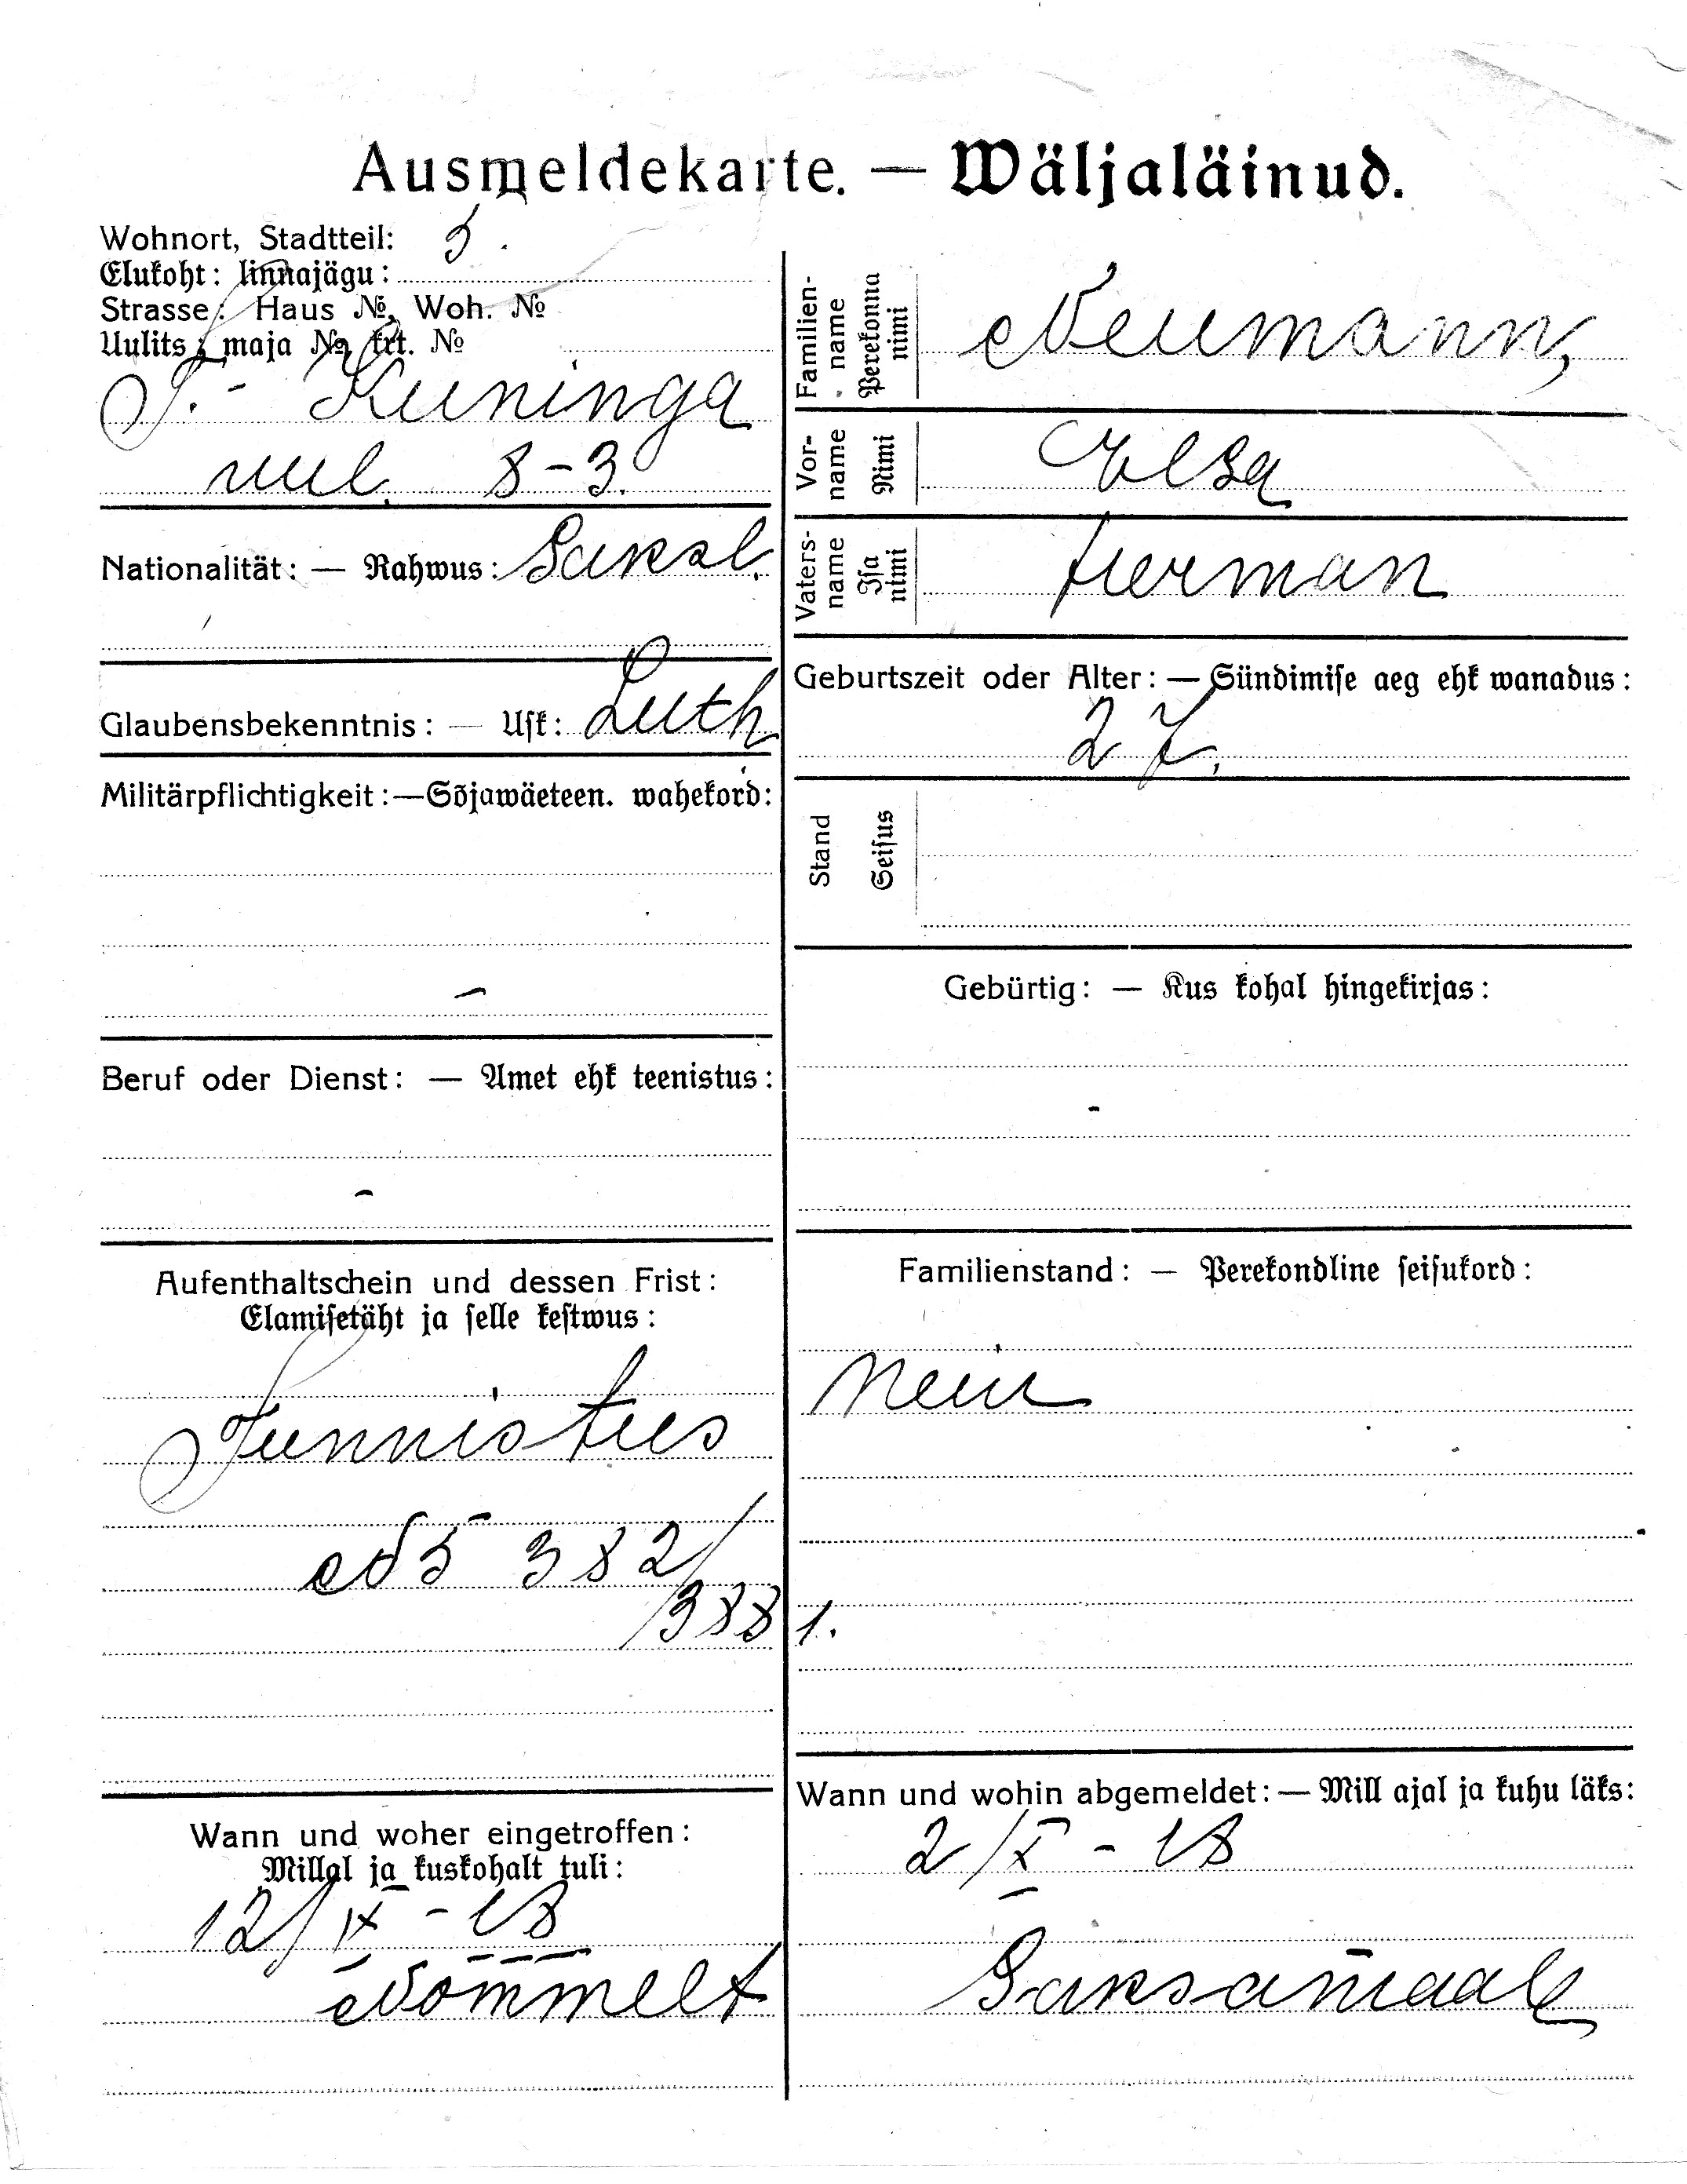 Ausmeldekarte. — Wäljaläinud.
Wohnort, Stadtteil: 5.
Elukoht: linnajägu:
Strasse: Haus №, Woh. №
Uulits, maja №, krt. №
S.- Kuninga
uul. 8-3.
Nationalität: — Rahwus: Saksl.
Glaubensbekenntnis: — Usk: Luth
Militärpflichtigkeit: — Sõjawäeteen. wahekord:
-
Beruf oder Dienst: — Amet ehk teenistus:
-
Aufenthaltschein und dessen Frist:
Elamisetäht ja selle kestwus:
Tunnistus
№ 5 382/
/3881.
Wann und woher eingetroffen:
Millal ja kuskohalt tuli:
12/IX - 18
Nõmmelt
Familien-
name
Perekonna
nimi
Neumann,
Vor-
name
Nimi
Elsa
Vaters-
name
Isa
nimi
Herman
Geburtszeit oder Alter: — Sündimise aeg ehk wanadus:
27.
Stand
Seisus
Gebürtig: — Kus kohal hingekirjas:
-
Familienstand: — Perekondline seisukord:
Neiu
Wann und wohin abgemeldet: — Mill ajal ja kuhu läks:
2/X - 18
Saksamaale